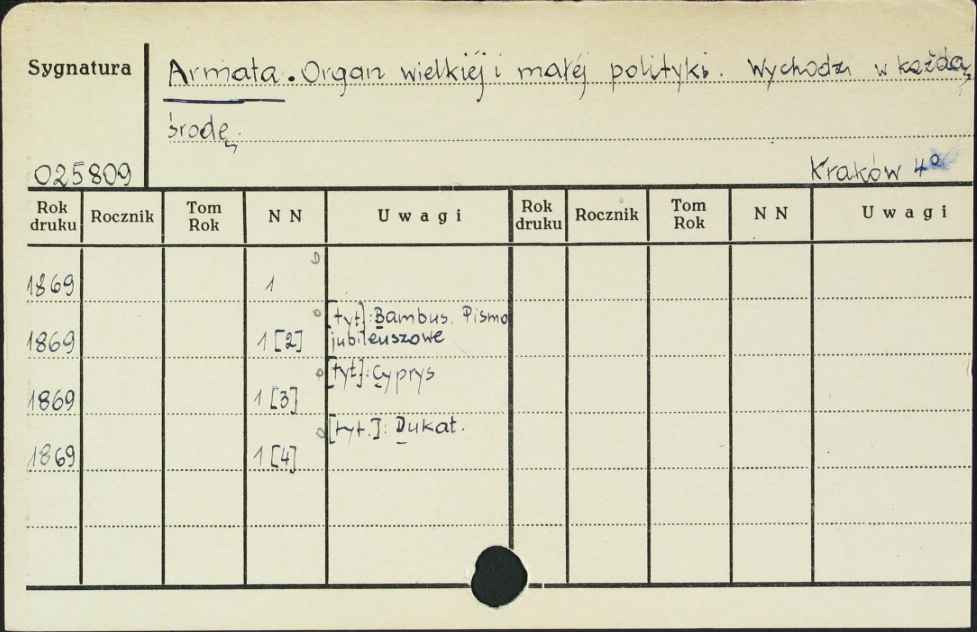 Sygnatura
Armata. Organ wielkiéj i małéj polityki. Wychodzi w każdą
środę.
025809
Kraków 4°
Rok druku Rocznik Tom Rok N N Uwagi Rok druku Rocznik Tom Rok N N Uwagi
1869 1
1869 1 [2] [tyt]: Bambus. Pismo jubileuszowe
1869 1 [3] [tyt]: Cyprys
1869 1 [4] [tyt.]: Dukat.